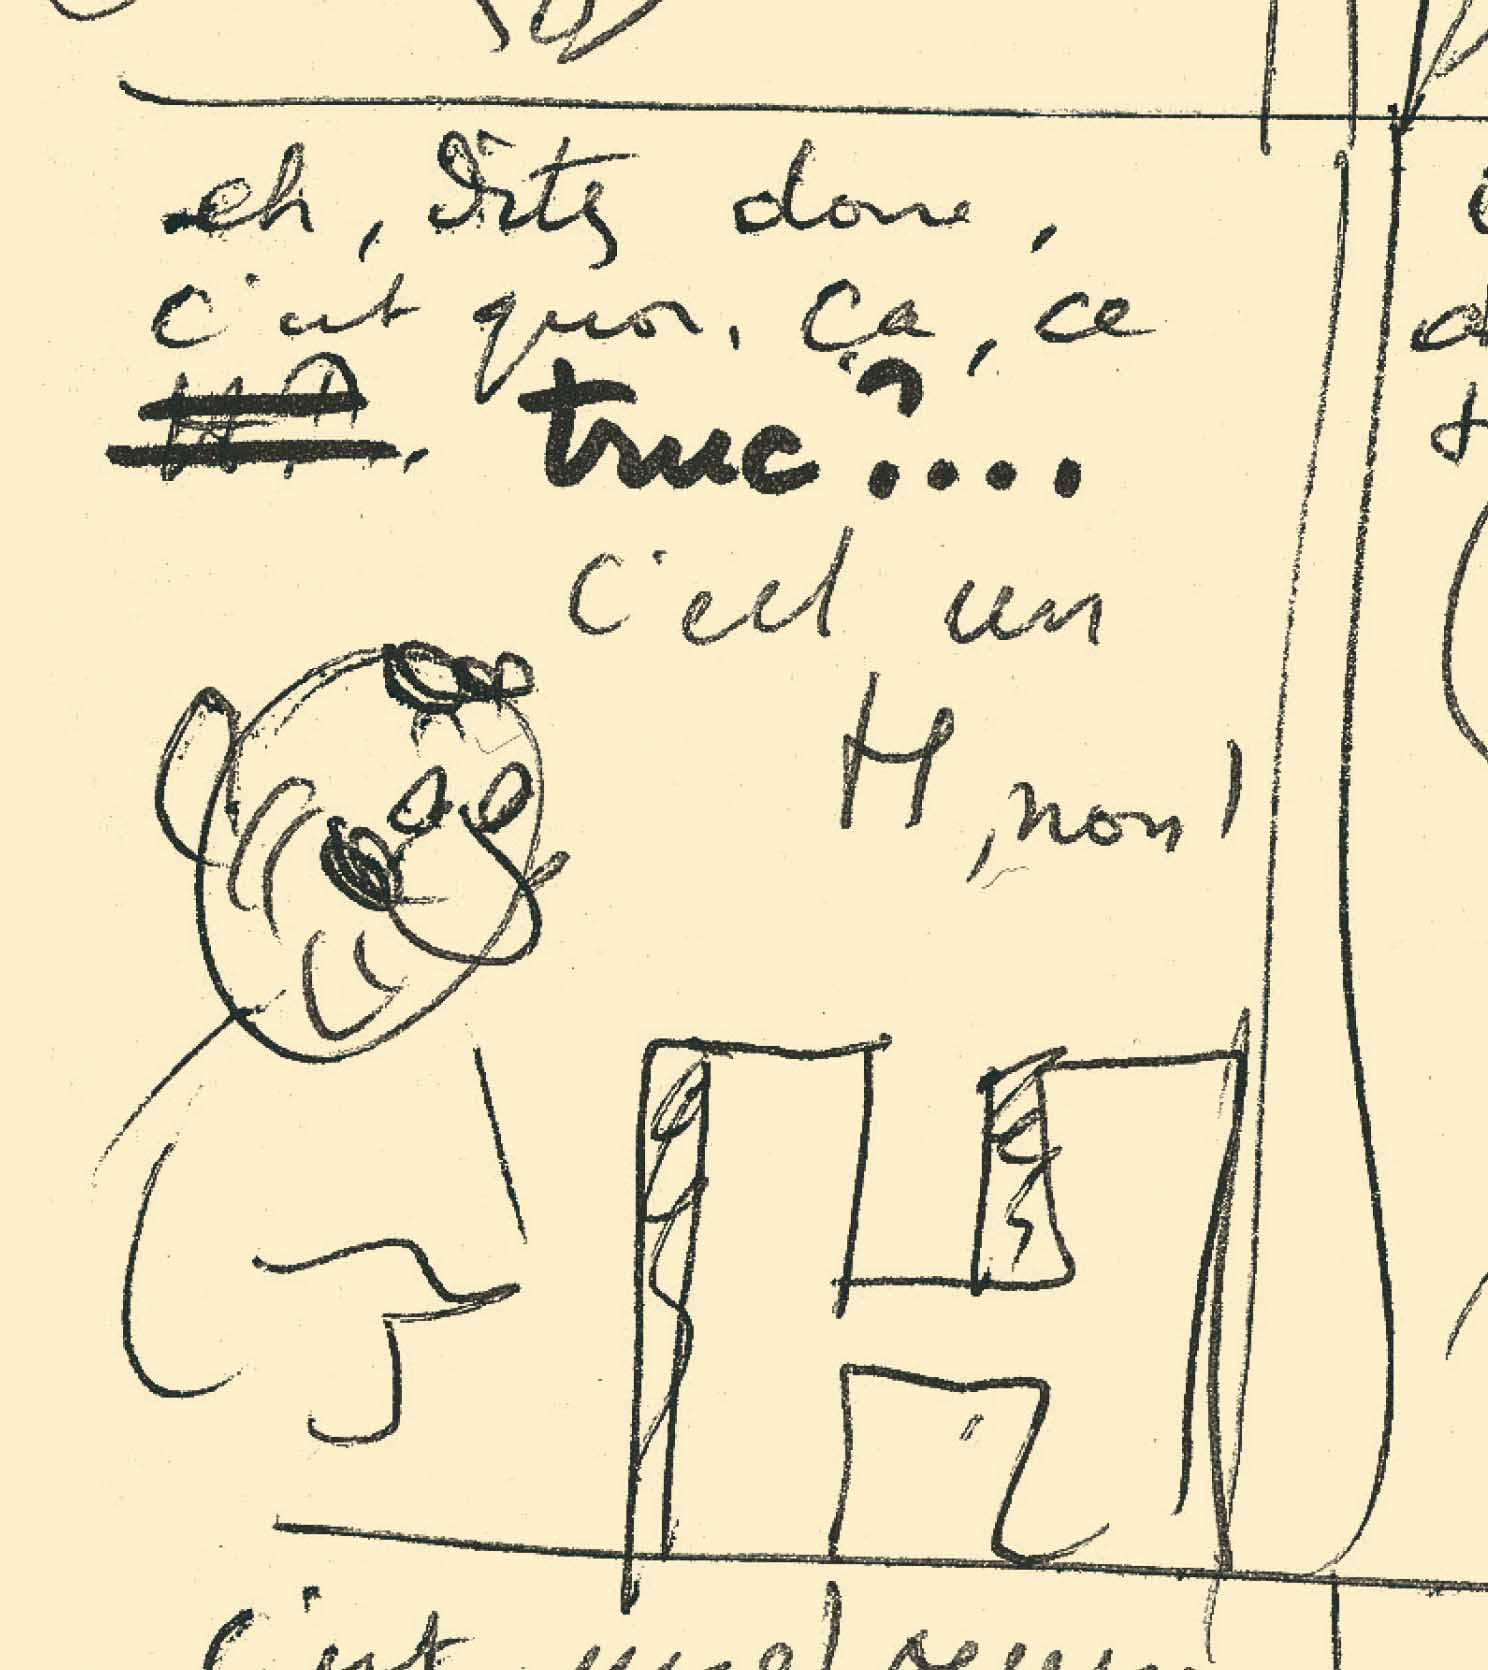 eh, dites donc,
c'est quoi, ça, ce
truc ?....
C'est un
H, non !
C'est